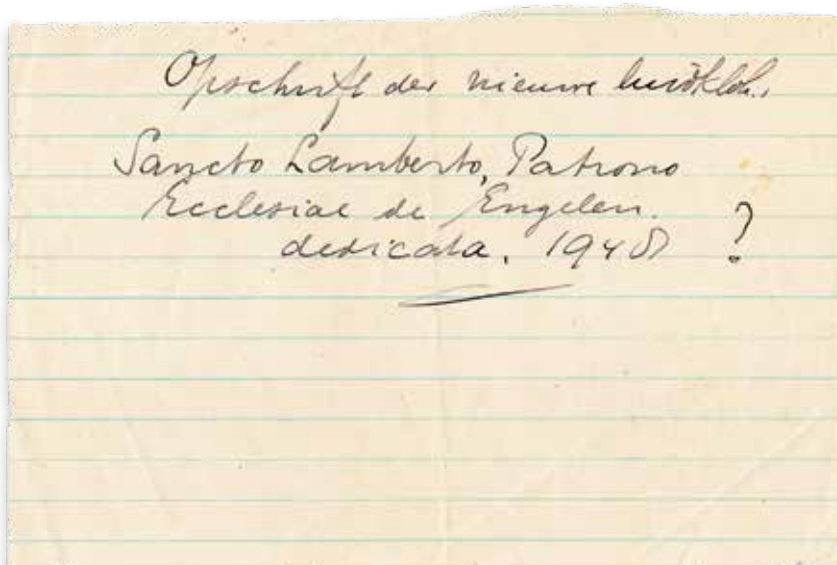 Opschrift der nieuwe
Sancto Lamberto, Patrono
Ecclesiae de Engelen.
dedicata. 1948 ?